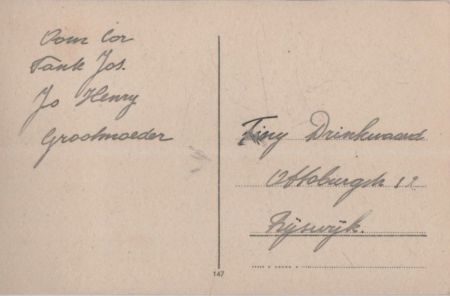 Oom Cor
Tante Jos.
Jo Henry
Grootmoeder
Tiny Drinkwaard
Rijswijk.
147